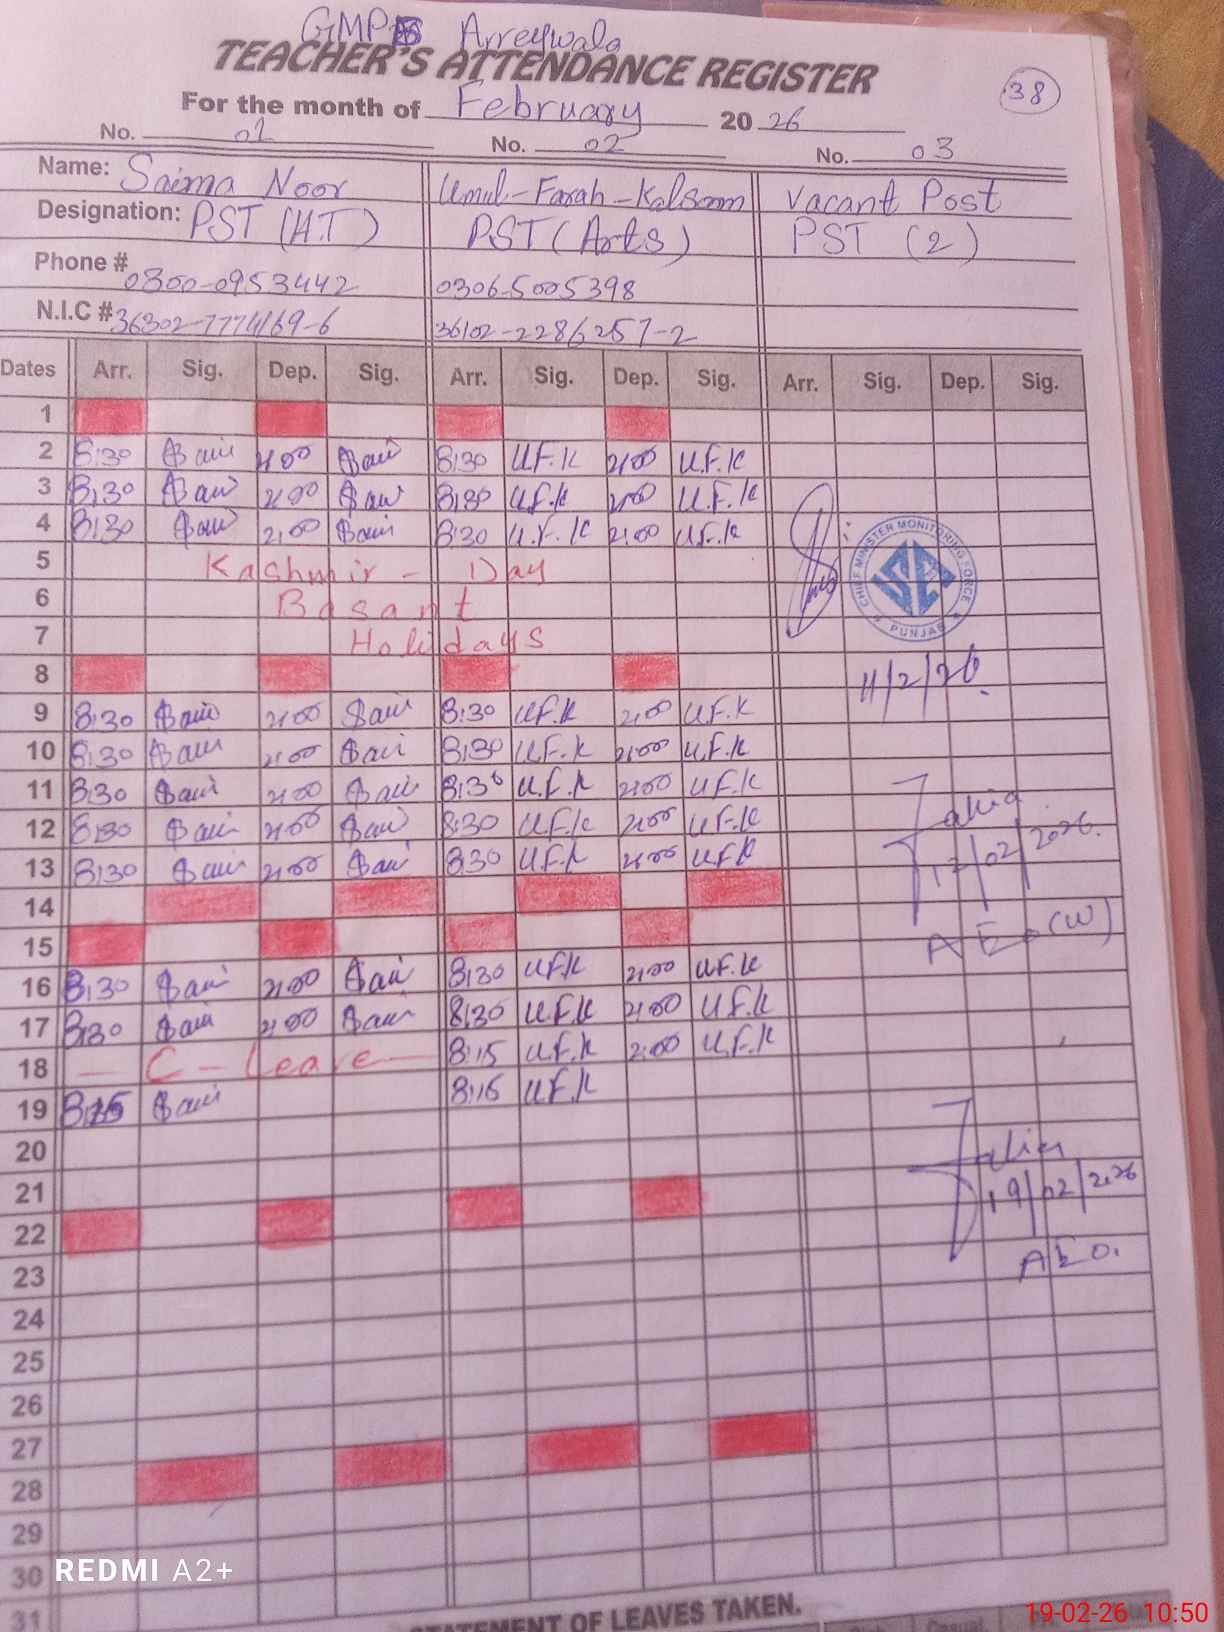 GMPS Arreywala
TEACHER'S ATTENDANCE REGISTER
38
For the month of February 2026
No. 01 No. 02 No. 03
Name: Saima Noor Umul-Farah-Kalsoom Vacant Post
Designation: PST (H.T) PST (Arts) PST (2)
Phone # 0300-0953442 0306-5005398
N.I.C # 36302-7774169-6 36102-2286257-2
Dates Arr. Sig. Dep. Sig. Arr. Sig. Dep. Sig. Arr. Sig. Dep. Sig.
1
2 8:30 Sai 2:00 Sai 8:30 U.F.K 2:00 U.F.K
3 8:30 Sai 2:00 Sai 8:30 U.F.K 2:00 U.F.K
4 8:30 Sai 2:00 Sai 8:30 U.F.K 2:00 U.F.K
CHIEF MINISTER MONITORING FORCE
PUNJAB
5 Kashmir - Day
6 Basant
7 Holidays
8
11/2/26.
9 8:30 Sai 2:00 Sai 8:30 U.F.K 2:00 U.F.K
10 8:30 Sai 2:00 Sai 8:30 U.F.K 2:00 U.F.K
11 8:30 Sai 2:00 Sai 8:30 U.F.K 2:00 U.F.K
12 8:30 Sai 2:00 Sai 8:30 U.F.K 2:00 U.F.K
12/02/2026.
13 8:30 Sai 2:00 Sai 8:30 U.F.K 2:00 U.F.K
14
15
AEO (W)
16 8:30 Sai 2:00 Sai 8:30 U.F.K 2:00 U.F.K
17 8:30 Sai 2:00 Sai 8:30 U.F.K 2:00 U.F.K
18 - C - Leave - 8:15 U.F.K 2:00 U.F.K
19 8:15 Sai 8:15 U.F.K
20
21
19/02/2026
22
AEO.
23
24
25
26
27
28
29
30
31
STATEMENT OF LEAVES TAKEN.
REDMI A2+
19-02-26 10:50